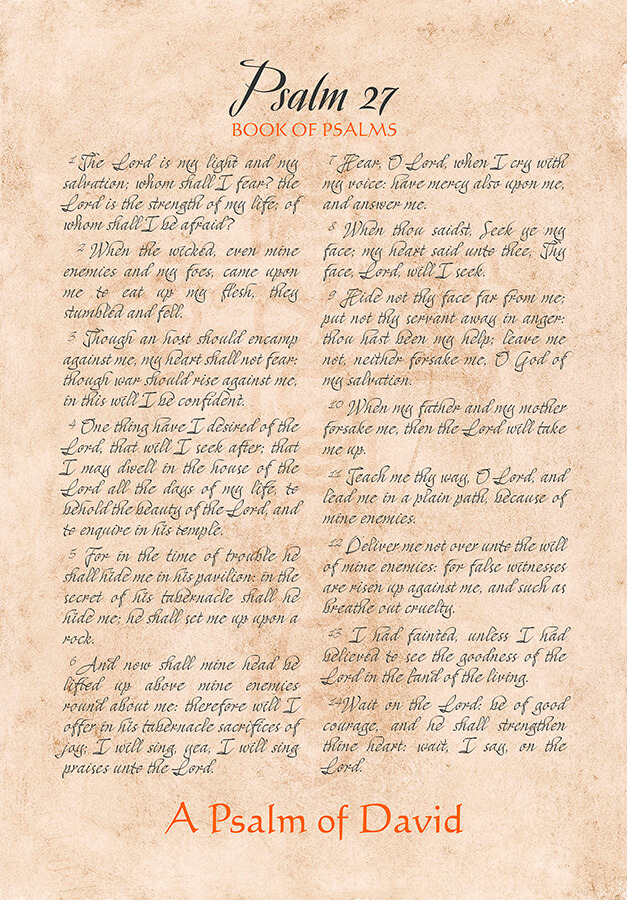 Psalm 27
BOOK OF PSALMS
1 The Lord is my light and my
salvation; whom shall I fear? the
Lord is the strength of my life; of
whom shall I be afraid?
2 When the wicked, even mine
enemies and my foes, came upon
me to eat up my flesh, they
stumbled and fell.
3 Though an host should encamp
against me, my heart shall not fear:
though war should rise against me,
in this will I be confident.
4 One thing have I desired of the
Lord, that will I seek after; that
I may dwell in the house of the
Lord all the days of my life, to
behold the beauty of the Lord, and
to enquire in his temple.
5 For in the time of trouble he
shall hide me in his pavilion: in the
secret of his tabernacle shall he
hide me; he shall set me up upon a
rock.
6 And now shall mine head be
lifted up above mine enemies
round about me: therefore will I
offer in his tabernacle sacrifices of
joy; I will sing, yea, I will sing
praises unto the Lord.
7 Hear, O Lord, when I cry with
my voice: have mercy also upon me,
and answer me.
8 When thou saidst, Seek ye my
face; my heart said unto thee, Thy
face, Lord, will I seek.
9 Hide not thy face far from me;
put not thy servant away in anger:
thou hast been my help; leave me
not, neither forsake me, O God of
my salvation.
10 When my father and my mother
forsake me, then the Lord will take
me up.
11 Teach me thy way, O Lord, and
lead me in a plain path, because of
mine enemies.
12 Deliver me not over unto the will
of mine enemies: for false witnesses
are risen up against me, and such as
breathe out cruelty.
13 I had fainted, unless I had
believed to see the goodness of the
Lord in the land of the living.
14 Wait on the Lord: be of good
courage, and he shall strengthen
thine heart: wait, I say, on the
Lord.
A Psalm of David